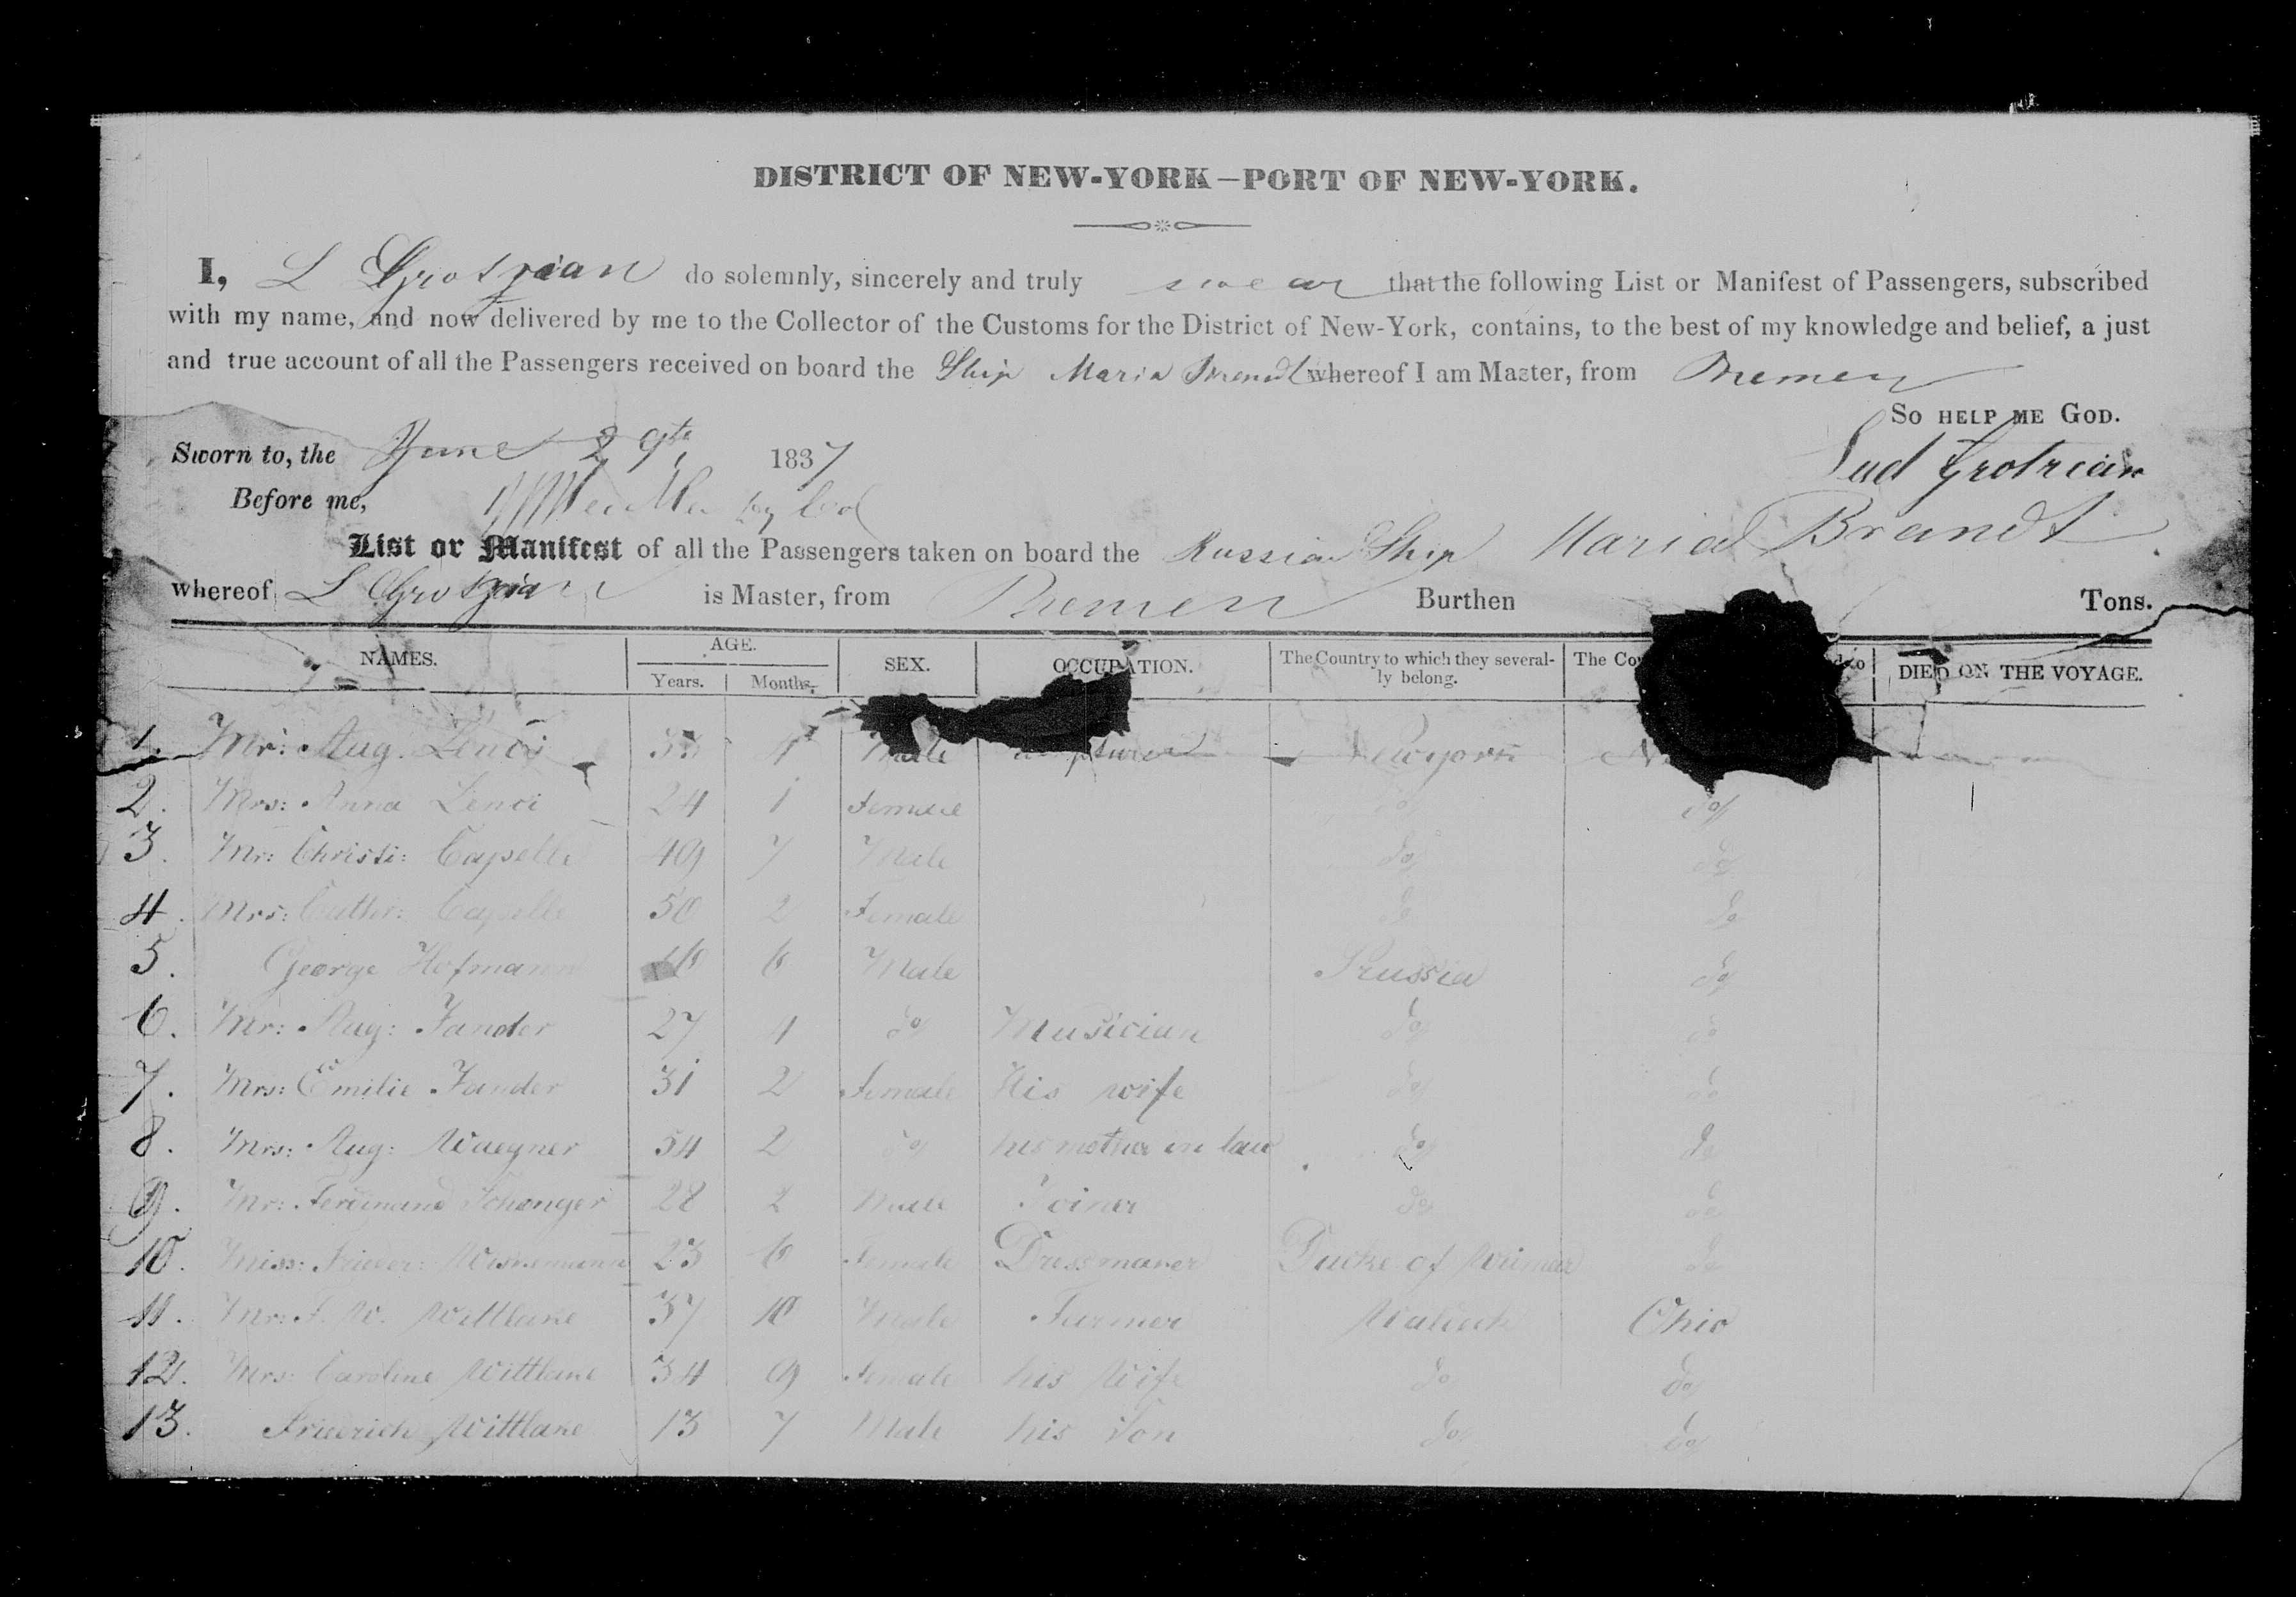 DISTRICT OF NEW-YORK—PORT OF NEW-YORK.
I, L Grotrian do solemnly, sincerely and truly swear that the following List or Manifest of Passengers, subscribed
with my name, and now delivered by me to the Collector of the Customs for the District of New-York, contains, to the best of my knowledge and belief, a just
and true account of all the Passengers received on board the Ship Maria Brandt whereof I am Master, from Bremen
SO HELP ME GOD.
Sworn to, the June 29th 1837 Lud Grotrian
Before me,
List or Manifest of all the Passengers taken on board the Russian Ship Maria Brandt
whereof L Grotrian is Master, from Bremen Burthen Tons.
NAMES. AGE. SEX. OCCUPATION. The Country to which they several- The to DIED ON THE VOYAGE.
Years. Months. ly belong.
1. Mr: Aug. Lenci 4 Male Newyork
2. Mrs: Anna Lenci 24 1 Female do do
3. Mr: Christi: Capelle 49 7 Male do do
4. Mrs: Cathr: Capelle 50 2 Female do do
5. George Hofmann 6 Male Prussia do
6. Mr: Aug: Fander 27 4 do Musician do do
7. Mrs: Emilie Fander 31 2 Female His wife do do
8. Mrs: Aug: Waegner 54 2 do his mother in law do do
9. Mr: Ferdinand Schonger 28 2 Male Joiner do do
10. Miss: Frieder: 23 6 Female Dressmaker Ducke of Weimar do
11. Mr: F. W. Wittlake 37 10 Male Farmer Waldeck Ohio
12. Mrs: Caroline Wittlake 34 9 Female his Wife do do
13. Friedrich Wittlake 13 7 Male his Son do do